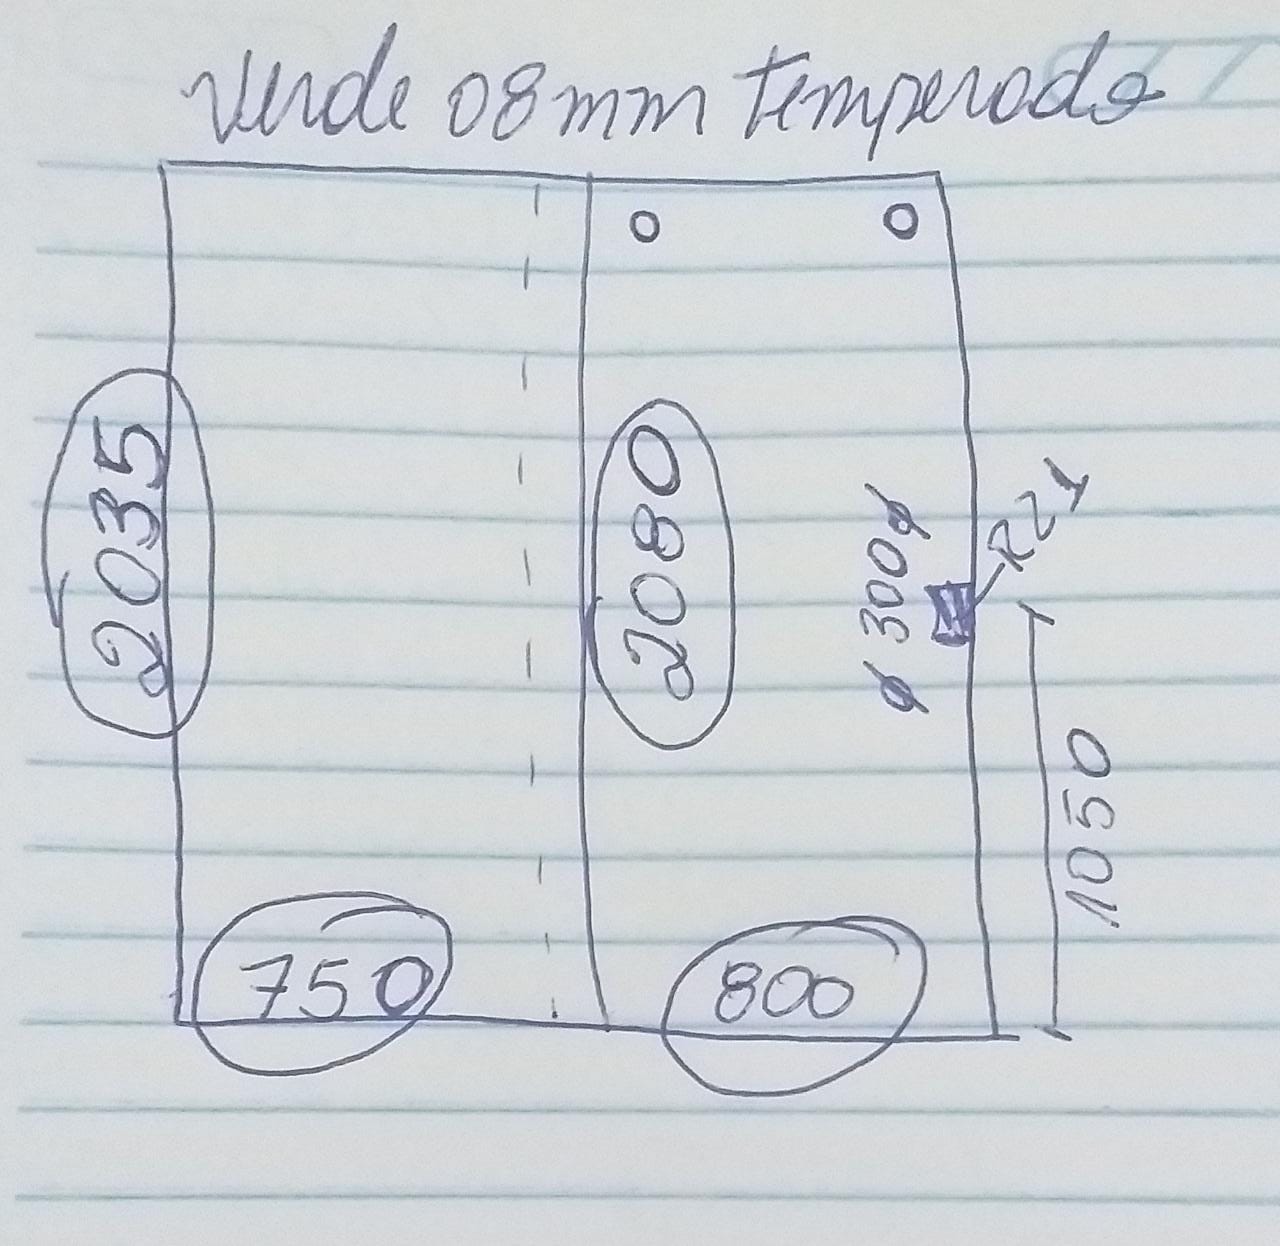 Verde 08mm temperado
2035
2080
ø 300 ø
R21
1050
750
800